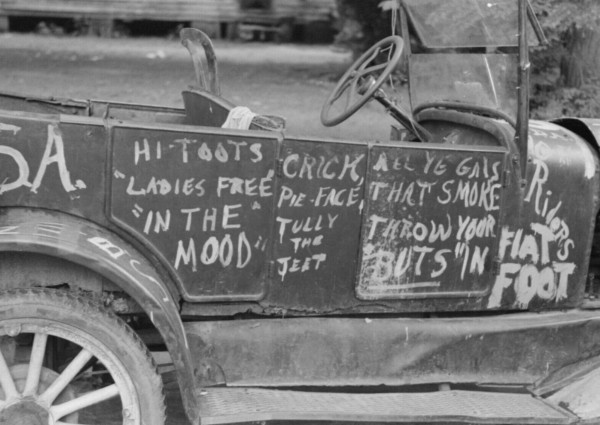 SA.
HI-TOOTS
"LADIES FREE"
"IN THE
MOOD"
CRICK,
PIE-FACE,
TULLY
THE
JEET
ALL YE GALS
THAT SMOKE
THROW YOUR
"BUTS" IN
NO
RIDERS
FLAT
FOOT